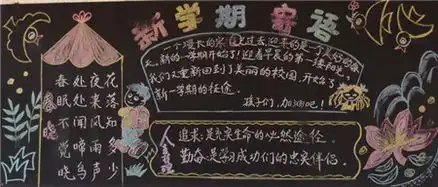 新学期寄语
春眠不觉晓
处处闻啼鸟
夜来风雨声
花落知多少
一个漫长的寒假过去迎来的是一个美好的春
天。新的一学期开始了!迎着早晨的第一缕阳光,
我们又重新回到了美丽的校园,开始了
新一学期的征途。
孩子们,加油吧!
人生
追求是充实生命的必然途径。
勤奋是学习成功们的忠实伴侣。